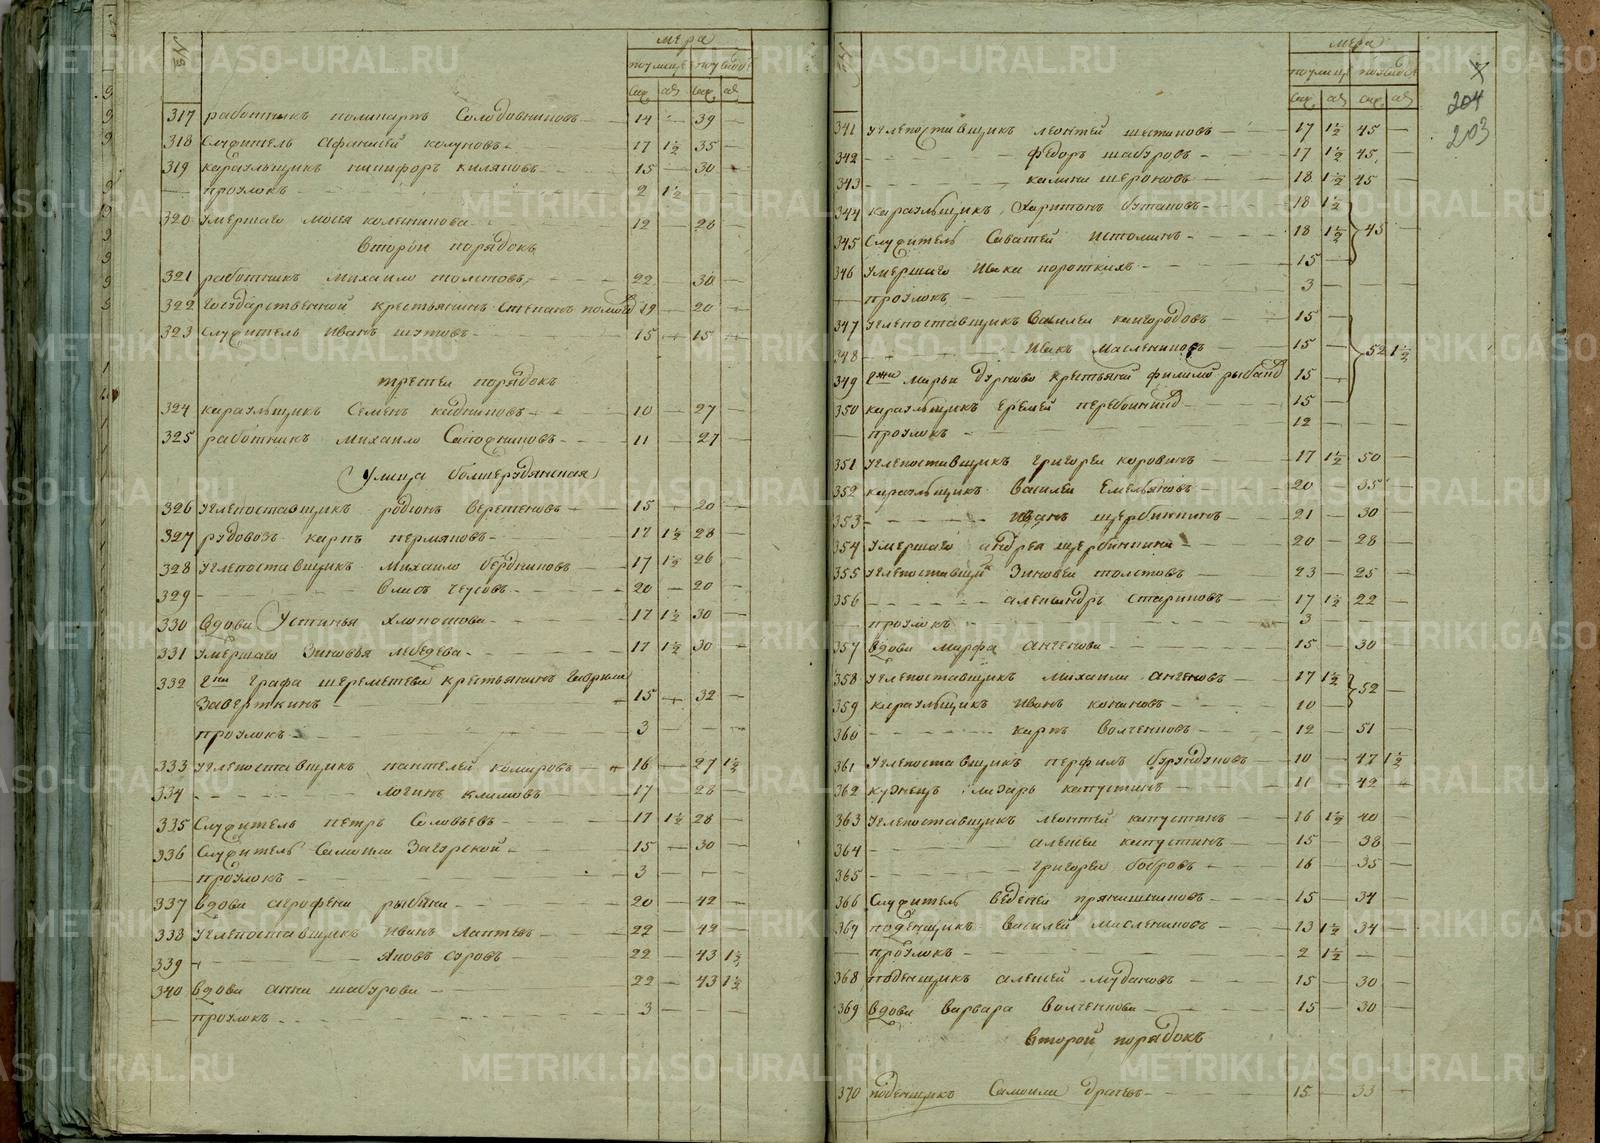 №
мера
поулице
саж
ар
саж
ар
317 работникъ поликарпъ Солодовниковъ 14 — 39 —
318 Служитель Афанасей колуновъ 17 1½ 35 —
319 караульщикъ никифоръ киляковъ 15 — 30 —
— проулокъ 2 1½
320 Умершаго 12 — 20 —
Второй порядокъ
321 работникъ Михайло толстовъ 22 — 30 —
322 Государственной крестьянинъ Степанъ 19 — 20 —
323 Служитель Иванъ шутовъ 15 — 15 —
третей порядокъ
324 караульщикъ Семенъ 10 — 27 —
325 работникъ Михайло Сапожниковъ 11 — 27
Улица
326 углепоставщикъ родионъ Веретеновъ 15 — 20 —
327 рудовозъ карпъ пермяковъ 17 1½ 28 —
328 углепоставщикъ Михайло бердниковъ 17 1½ 26
329 20 — 20 —
330 вдова Устинья 17 1½ 30 —
331 Умершаго Зиновья лебедева 17 1½ 30 —
332 Графа шереметева крестьянинъ Гаврило
Заверткинъ 15 — 32 —
проулокъ 3 — — —
333 углепоставщикъ пантелей комаровъ 16 — 27 1½
334 логинъ климовъ 17 — 28 —
335 Служитель петръ Соловьевъ 17 1½ 28 —
336 Служитель Самойла Загурской 15 — 30 —
— проулокъ 3 — — —
337 вдова агрофена рыбина 20 — 42 —
338 углепоставщикъ Иванъ Лаптевъ 22 — 42 —
339 Яковъ Суровъ 22 — 43 1½
340 вдова анна шабурова 22 — 43 1½
— проулокъ 3 — — —
мера
поулице
саж
ар
саж
ар
204
203
341 углепоставщикъ леонтей шестаковъ 17 1½ 45 —
342 федоръ шабуровъ 17 1½ 45 —
343 калина шероновъ 18 1½ 45 —
344 караульщикъ Харитонъ бутаковъ 18 1½
345 Служитель Саватей Истоминъ 18 1½ 45 —
346 Умершаго Ивана короткихъ 15 —
— проулокъ 3 — — —
347 углепоставщикъ Василей кайгородовъ 15 —
348 Исакъ Маслениковъ 15 — 52 1½
349 Гжи Марьи дурново крестьянинъ филипъ 15 —
350 караульщикъ Еремей 15 —
— проулокъ 12 — — —
351 углепоставщикъ григорей коровинъ 17 1½ 50 —
352 караульщикъ Василей Емельяновъ 20 — 35 —
353 Иванъ щербининъ 21 — 30 —
354 Умершаго андрея щербинина 20 — 28 —
355 углепоставщикъ Зиновей толстовъ 23 — 25 —
356 александръ Стариковъ 17 1½ 22 —
— проулокъ 3
357 вдова марфа анчекова 15 — 30 —
358 углепоставщикъ михаила анчековъ 17 1½ 52 —
359 караульщикъ Иванъ конановъ 10 —
360 карпъ Волченковъ 12 — 51 —
361 углепоставщикъ перфилъ бурундуковъ 10 — 47 1½
362 кузнецъ лазарь капустинъ 11 — 42 —
363 углепоставщикъ леонтей капустинъ 16 1½ 40 —
364 алексей капустинъ 15 — 38 —
365 григорей бобровъ 16 — 35 —
366 Служитель веденей прянишниковъ 15 — 34 —
367 поденщикъ Василей маслениковъ 13 1½ 34 —
— проулокъ 2 1½ —
368 поденщикъ алексей 15 — 30 —
369 вдова варвара Волченкова 15 — 30 —
Второй порядокъ
370 поденщикъ Самойла 15 — 33 —
METRIKI.GASO-URAL.RU